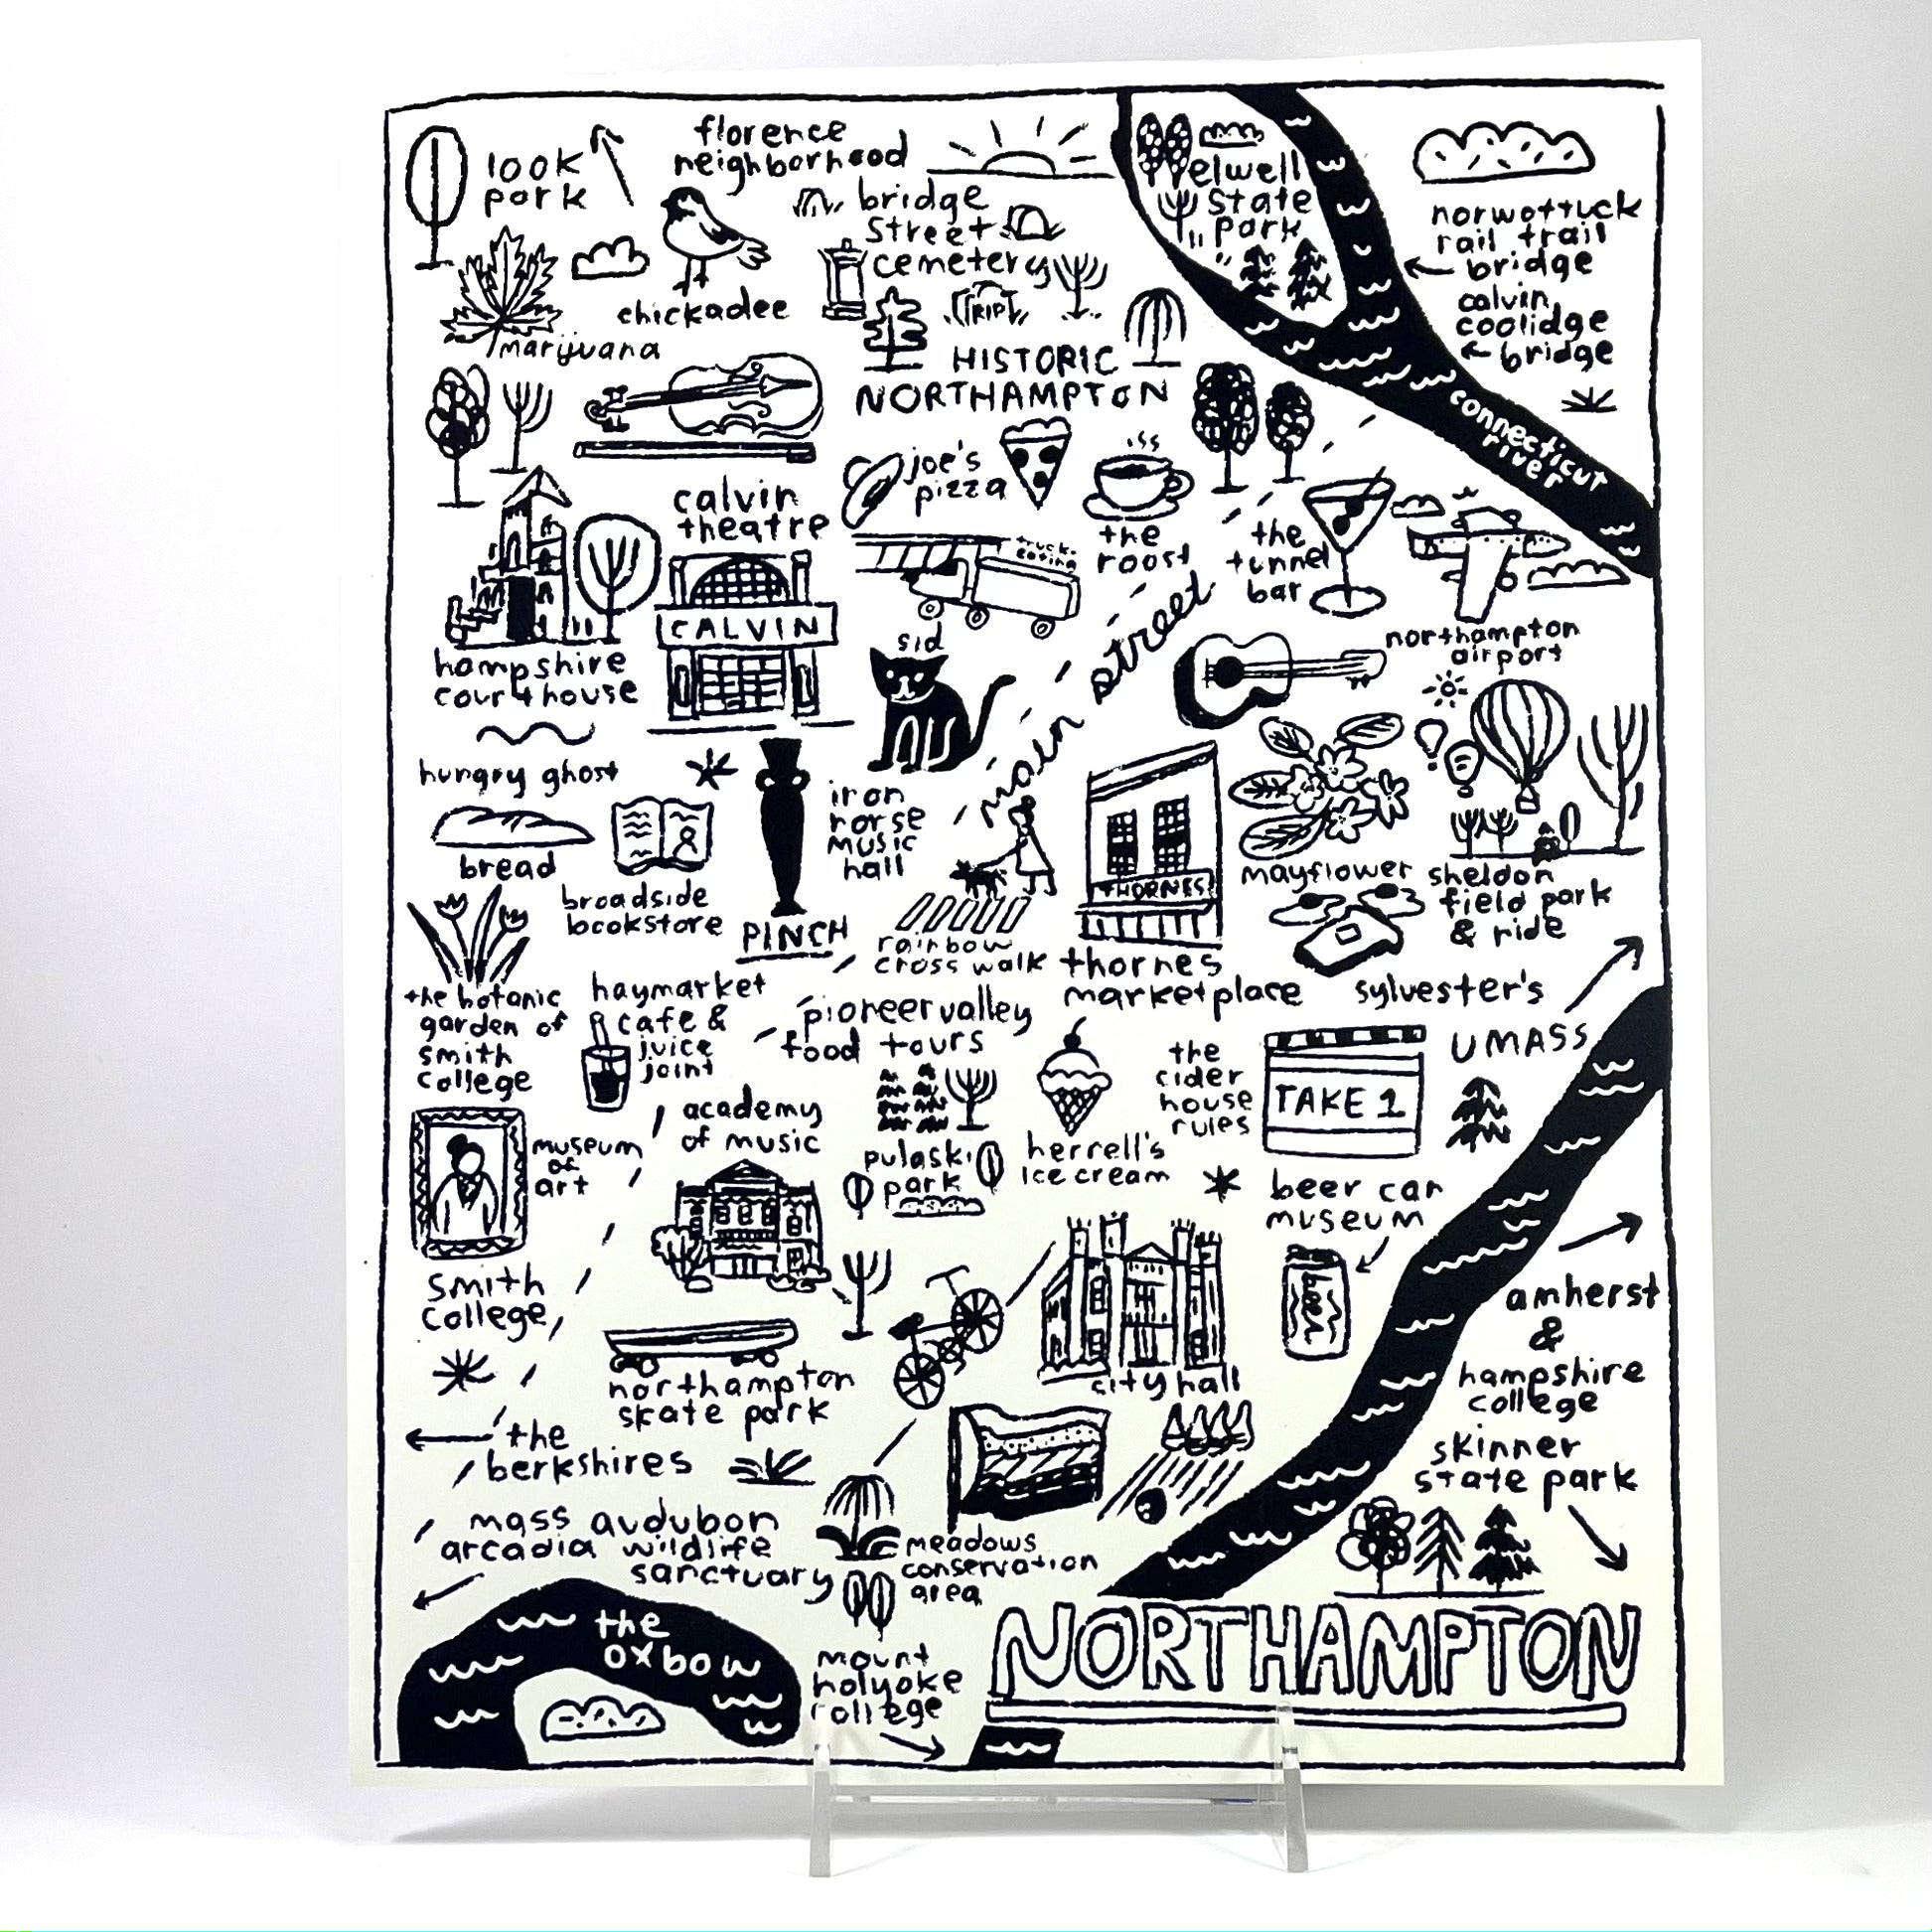 look
park
florence
neighborhood
chickadee
marijuana
bridge
street
cemetery
RIP
HISTORIC
NORTHAMPTON
elwell
state
park
norwottuck
rail trail
bridge
calvin
coolidge
bridge
connecticut
river
calvin
theatre
CALVIN
joe's
pizza
truck-
eating
the
roost
the
tunnel
bar
northampton
airport
hampshire
courthouse
sid
main street
hungry ghost
bread
broadside
bookstore
PINCH
iron
horse
music
hall
rainbow
cross walk
THORNES
thornes
marketplace
mayflower
sheldon
field park
& ride
sylvester's
UMASS
the botanic
garden of
smith
college
haymarket
cafe &
juice
joint
pioneer valley
food tours
academy
of music
museum
of
art
smith
college
pulaski
park
herrell's
ice cream
the
cider
house
rules
TAKE 1
beer can
museum
beer
amherst
&
hampshire
college
northampton
skate park
city hall
the
berkshires
skinner
state park
mass audubon
arcadia wildlife
sanctuary
meadows
conservation
area
the
oxbow
mount
holyoke
college
NORTHAMPTON